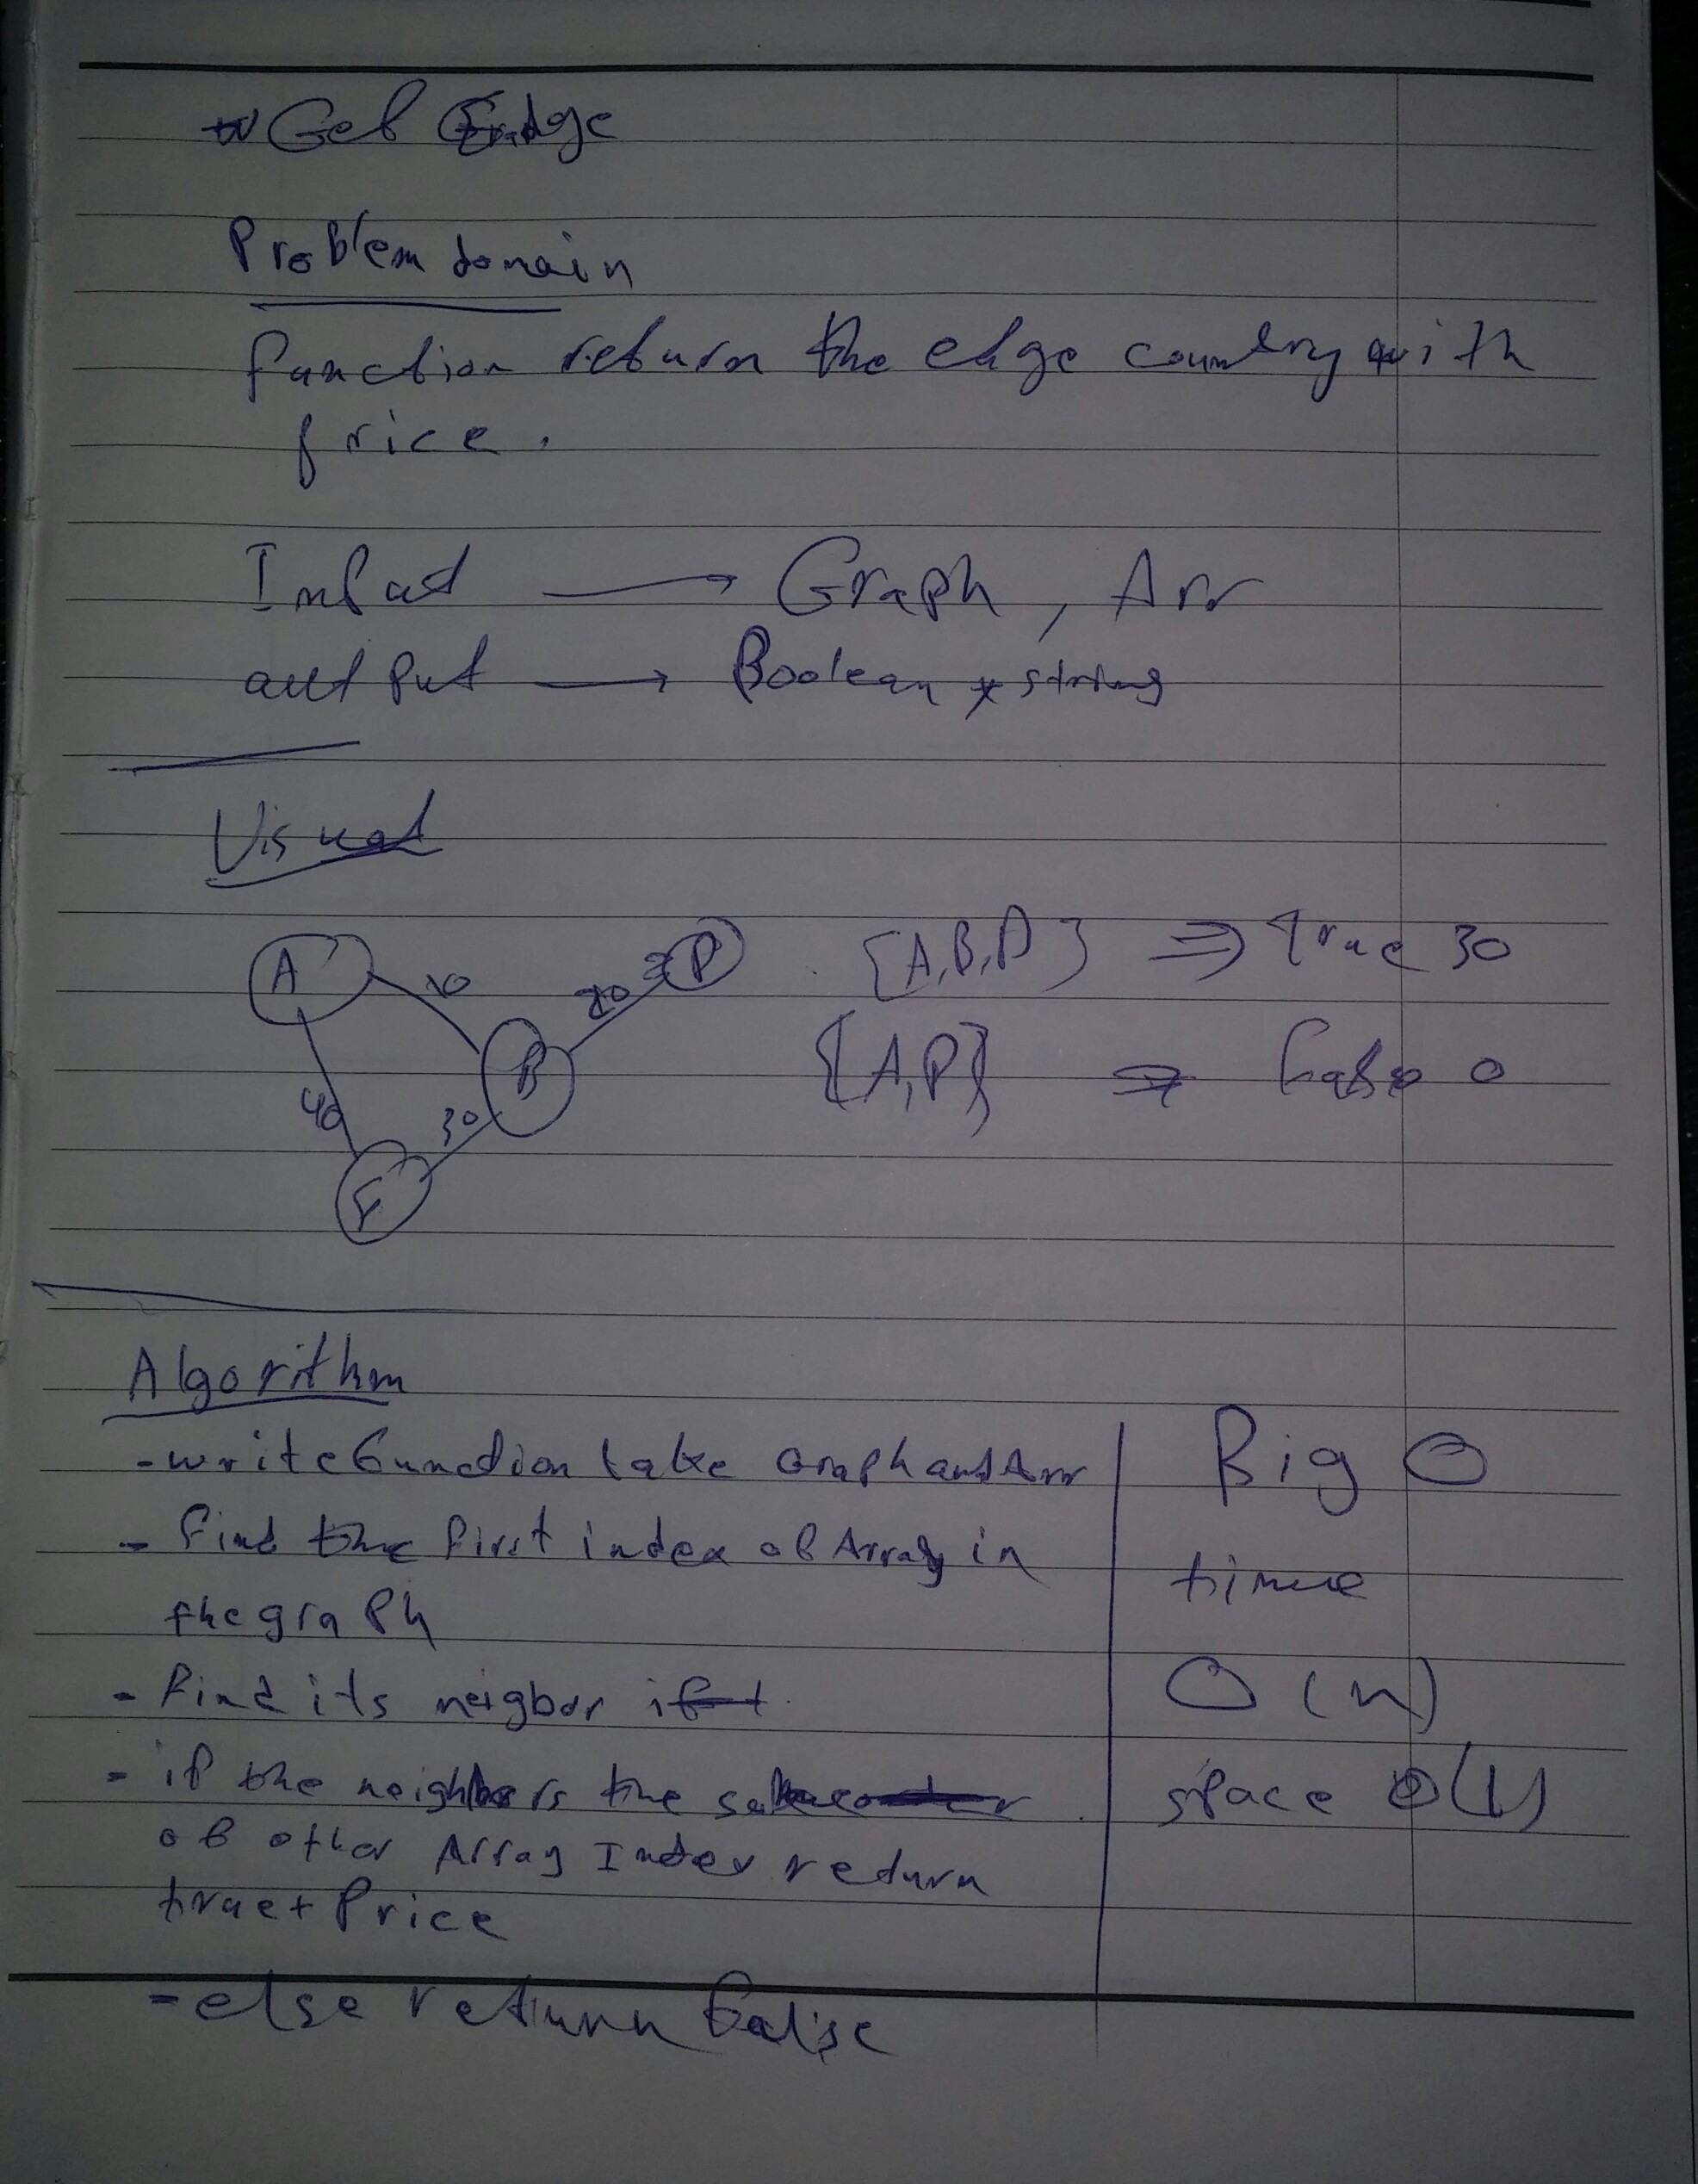 Get Edge
Problem domain
function return the edge country with
price.
Input → Graph, Arr
output → Boolean + string
Visual
A 10 20 D {A,B,D} ⇒ true 30
B {A,D} ⇒ false 0
40 30
F
Algorithm
- write function take Graph and Arr
- find the first index of Array in
the graph
- find its neigbor
- if the neighbers the
of other Array Index return
true + Price
- else return false
Big O
time
O(n)
space O(1)